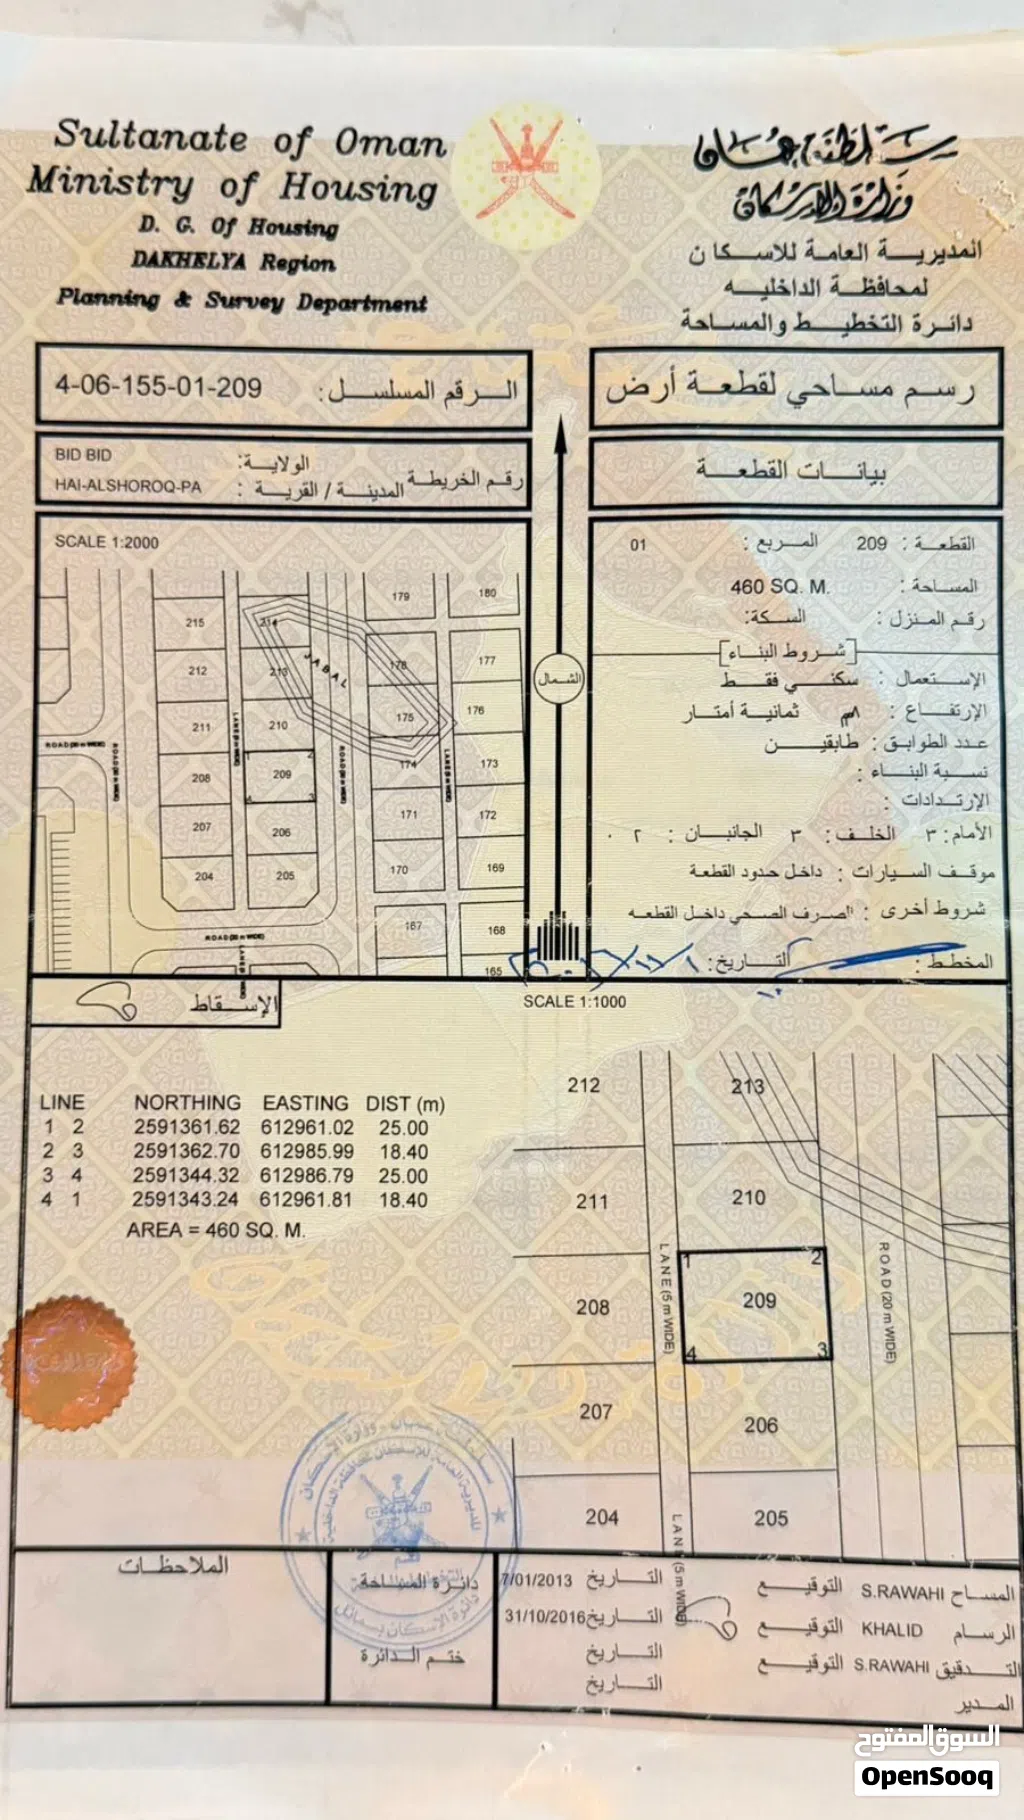 Sultanate of Oman
Ministry of Housing
D. G. Of Housing
DAKHELYA Region
Planning & Survey Department
سلطنة عمان
وزارة الاسكان
المديرية العامة للاسكان
لمحافظة الداخليه
دائرة التخطيط والمساحة
4-06-155-01-209 الرقم المسلسل:
رسم مساحي لقطعة أرض
BID BID الولاية:
HAI-ALSHOROQ-PA المدينة / القرية : رقم الخريطة
بيانات القطعة
SCALE 1:2000
179 180
215 214
JABAL
212 213 178 177
211 210 175 176
ROAD
LANE
208 209 174 173
1 2
4 3
207 206 171 172
204 205 170 169
167 168
165
الشمال
القطعة : 209 المربع : 01
المساحة : 460 SQ. M.
رقم المنزل : السكة:
[شروط البناء]
الإستعمال : سكني فقط
الإرتفاع : ٨م ثمانية أمتار
عدد الطوابق : طابقين
نسبة البناء :
الإرتدادات :
الأمام: ٣ الخلف: ٣ الجانبان : ٢
موقف السيارات : داخل حدود القطعة
شروط أخرى : الصرف الصحي داخل القطعه
المخطط : التاريخ:
الإسقاط
SCALE 1:1000
LINE NORTHING EASTING DIST (m)
1 2 2591361.62 612961.02 25.00
2 3 2591362.70 612985.99 18.40
3 4 2591344.32 612986.79 25.00
4 1 2591343.24 612961.81 18.40
AREA = 460 SQ. M.
212 213
211 210
LANE (5 m WIDE)
ROAD (20 m WIDE)
1 2
208 209
4 3
207 206
204 205
LANE (5 m WIDE)
الملاحظات
دائرة المساحة
ختم الدائرة
المساح S.RAWAHI التوقيع التاريخ 7/01/2013
الرسام KHALID التوقيع التاريخ 31/10/2016
التدقيق S.RAWAHI التوقيع التاريخ
المدير التاريخ
السوق المفتوح
OpenSooq